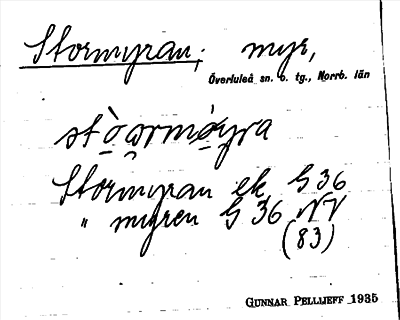 Stormyran; myr,
Överluleå sn. o. tg., Norrb. län
stòarmøyra
Stormyran ek G 36
" myren G 36 NV
(83)
GUNNAR PELLIJEFF 1935